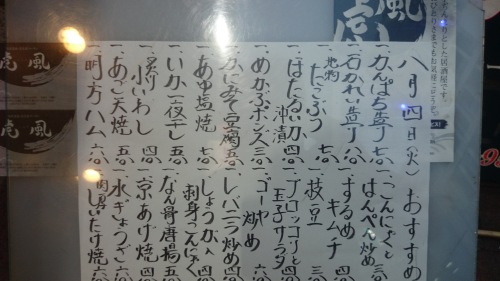 八月四日(火)おすすめ
一、かんぱち造り 七〇〇
一、石かれい造り 八〇〇
一、地物 たこぶつ 七〇〇
一、ほたるいか 沖漬 四〇〇
一、めかぶポンズ 三〇〇
一、かにみそ豆腐 五〇〇
一、あゆ塩焼 七
一、いか一夜干 五〇〇
一、炙り 小いわし 四
一、あご天焼 五〇〇
一、明方ハム 六〇〇
一、こんにゃくと はんぺん炒め 三
一、するめ キムチ 四
一、枝豆 三
一、ブロッコリと 玉子サラダ 四
一、ゴーヤ 炒め
一、レバニラ炒め 四
一、しょうが入 刺身こんにゃく 四
一、なん骨唐揚 五
一、京あげ焼 四
一、水ぎょうざ 六
一、肉厚 しいたけ焼 六
風
風
風